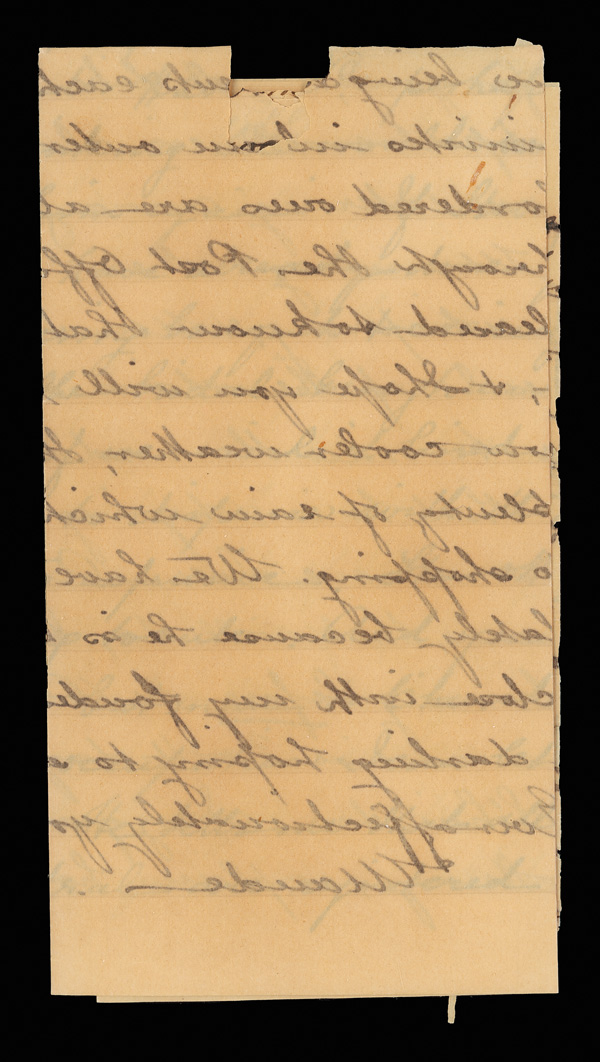 being cents each
invites in one outer
ordered ones are at
hrough the Post Offi
leased to know that
& I hope you will
ow cooler weather,
plenty of rain which
o shopping. We have
lately because he is
close with my fonde
darling hoping to
Ever affectionately yo
Maude